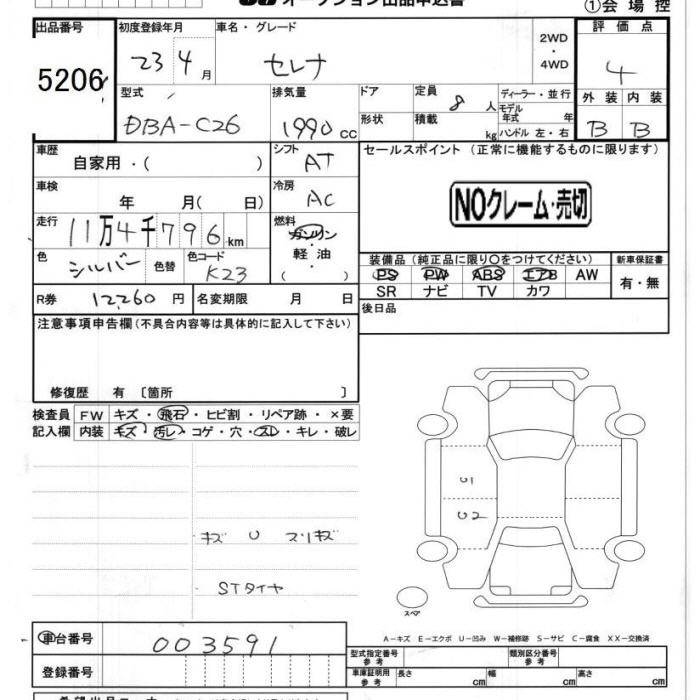 オークション出品申込書
①会場控
出品番号 初度登録年月 車名・グレード 2WD・4WD 評価点
5206 23 4月 セレナ 4
型式 排気量 ドア 定員 8人 ディーラー・並行 外装 内装
DBA-C26 1990 CC 形状 積載 kg モデル年式 年 ハンドル 左・右 B B
車歴 自家用・( ) シフト AT セールスポイント (正常に機能するものに限ります)
車検 年 月(日) 冷房 AC NOクレーム・売切
走行 11万4千796km 燃料 ガソリン・軽油・( )
色 シルバー 色替 色コード K23
装備品 (純正品に限り〇をつけてください) 新車保証書
PS PW ABS エアB AW 有・無
SR ナビ TV カワ
R券 12,260円 名変期限 月 日
後日品
注意事項申告欄(不具合内容等は具体的に記入して下さい)
修復歴 有 〔箇所 〕
検査員 FW キズ・飛石・ヒビ割・リペア跡・×要
記入欄 内装 キズ・汚レ・コゲ・穴・スレ・キレ・破レ
キズ U スリキズ
STタイヤ
スペア
A-キズ E-エクボ U-凹み W-補修跡 S-サビ C-腐食 XX-交換済
車台番号 003591
型式指定番号 参考 類別区分番号 参考
登録番号 車庫証明用 参考 長さ cm 幅 cm 高さ cm